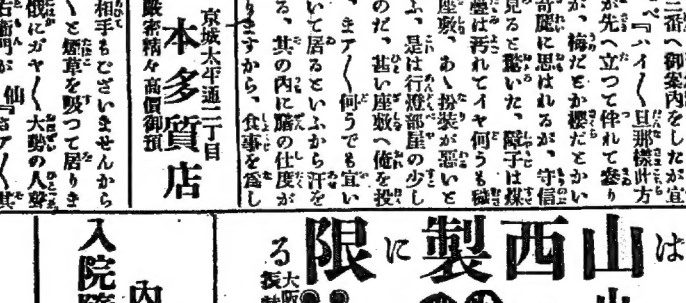 三番へ御案内をしたが宜
『ハイ〳〵旦那樣此方
が先へ立つて伴れて參り
が、梅だとか櫻だとかい
奇麗に思はれるが、守信
見ると驚いた、障子は煤
疊は汚れてイヤ何うも穢
座敷、あゝ扮裝が惡いと
ふ、是は行燈部屋の少し
のだ、甚い座敷へ俺を投
、まア〳〵何うでも宜い
いて居るといふから汗を
る、其の内に膳の仕度が
りますから、食事を爲し
京城太平通二丁目
本多質店
嚴密精々高價御預
相手もございませんから
と煙草を吸つて居りま
俄にガヤ〳〵大勢の人聲
右衞門が 仙『さア〳〵其
は
山西製に限る
大阪
内
入院